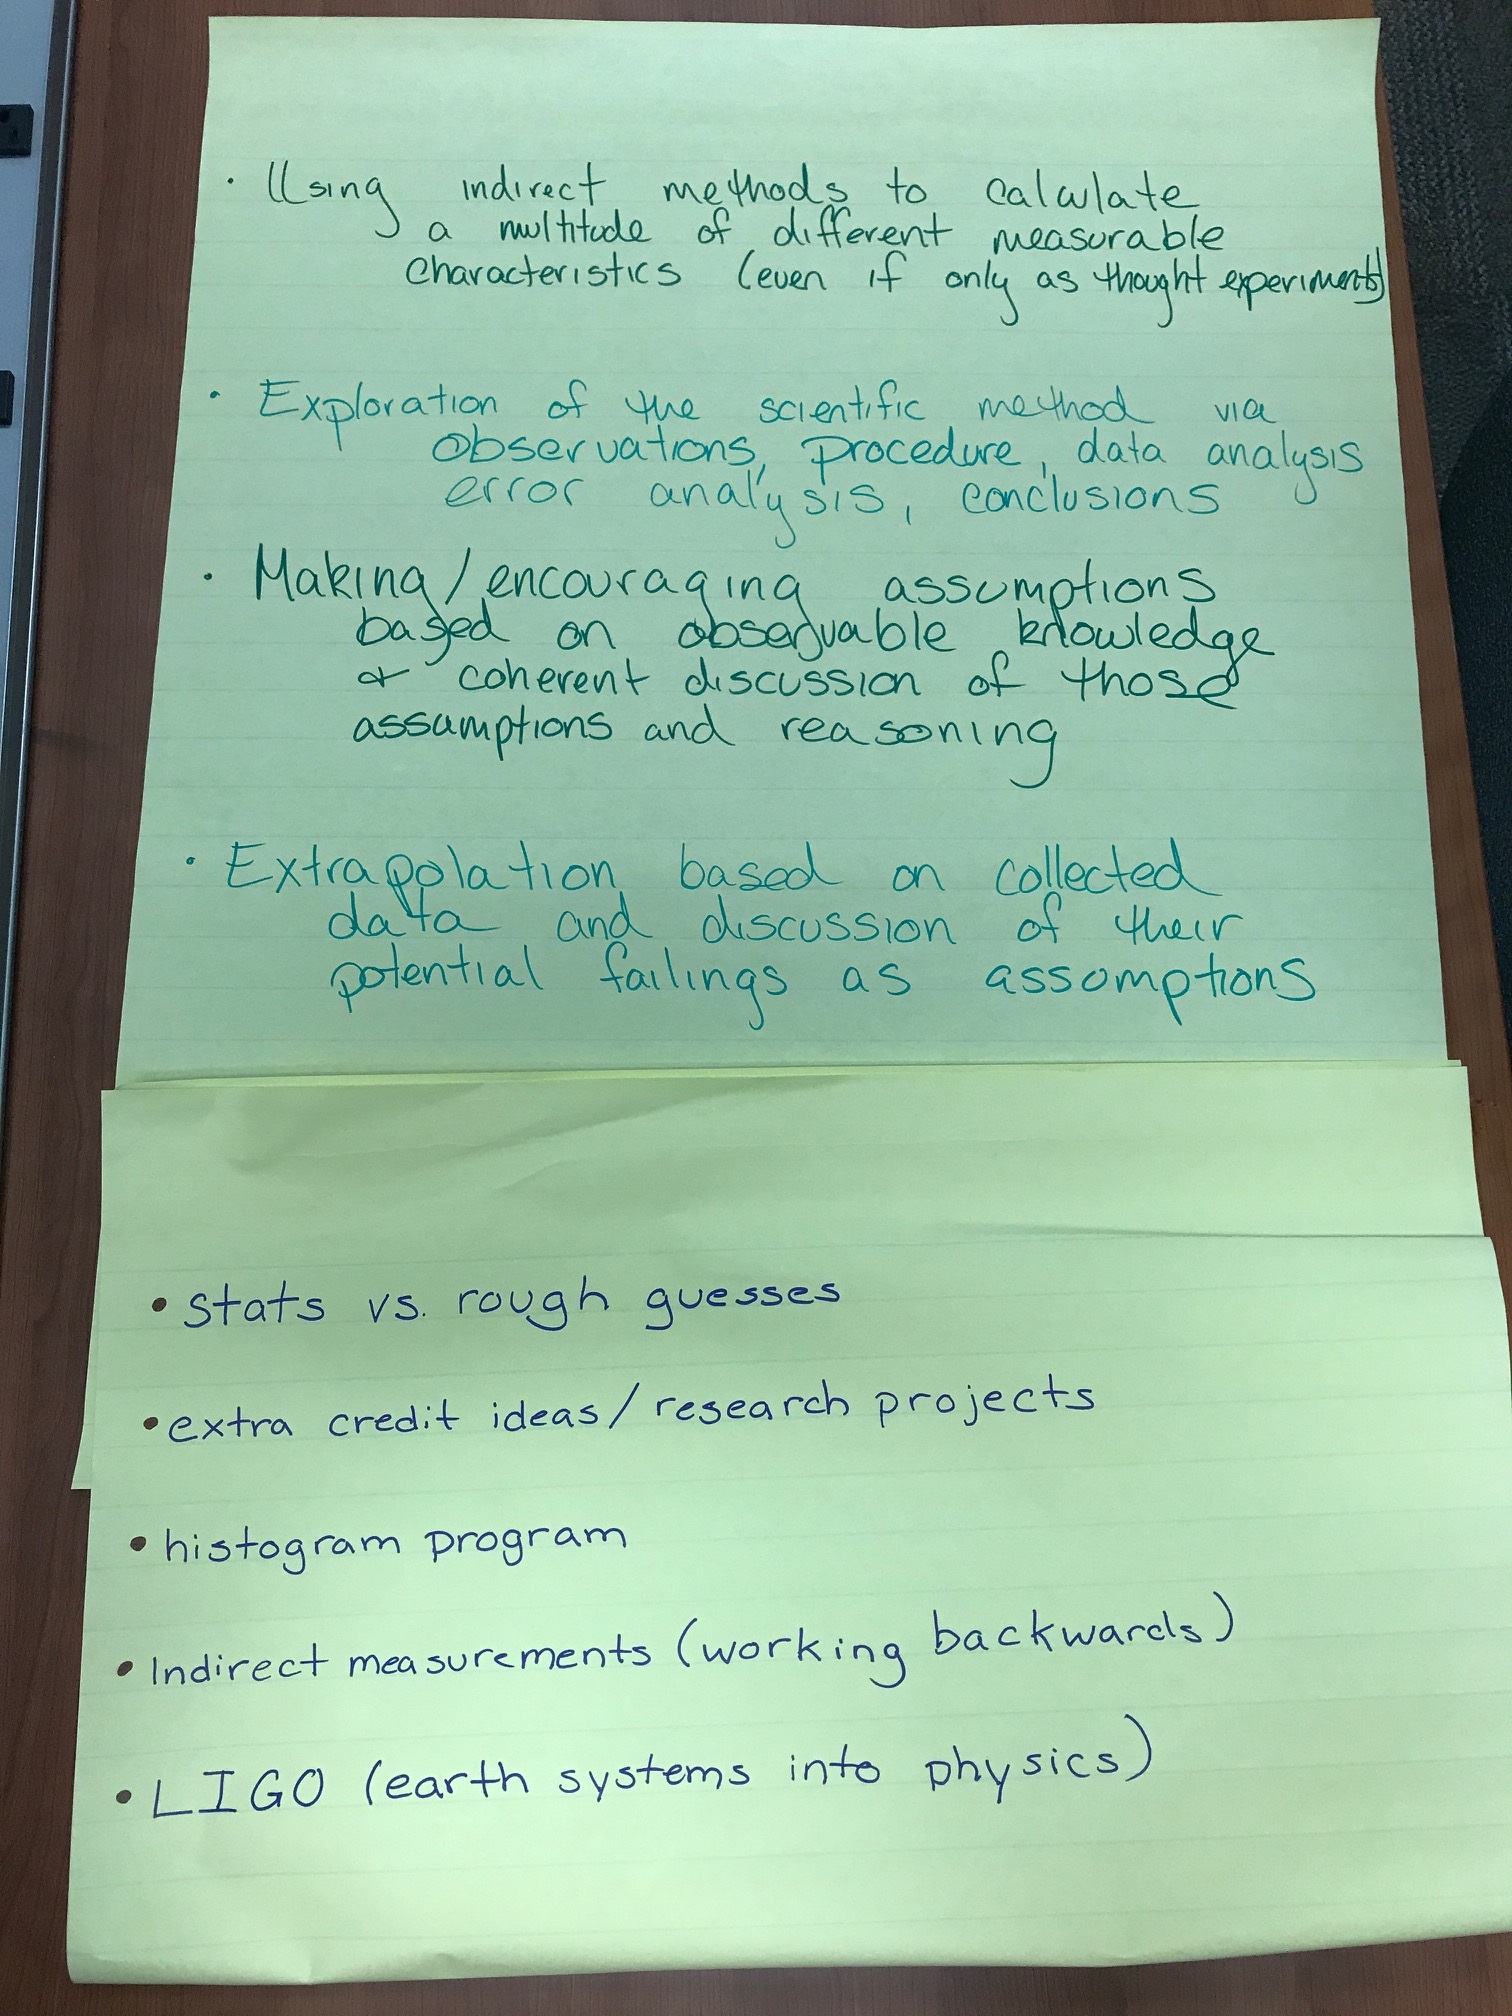 · Using indirect methods to calculate
a multitude of different measurable
characteristics (even if only as thought experiments)
· Exploration of the scientific method via
observations, procedure, data analysis
error analysis, conclusions
· Making/encouraging assumptions
based on observable knowledge
& coherent discussion of those
assumptions and reasoning
· Extrapolation based on collected
data and discussion of their
potential failings as assumptions
• stats vs. rough guesses
• extra credit ideas/research projects
• histogram program
• Indirect measurements (working backwards)
• LIGO (earth systems into physics)